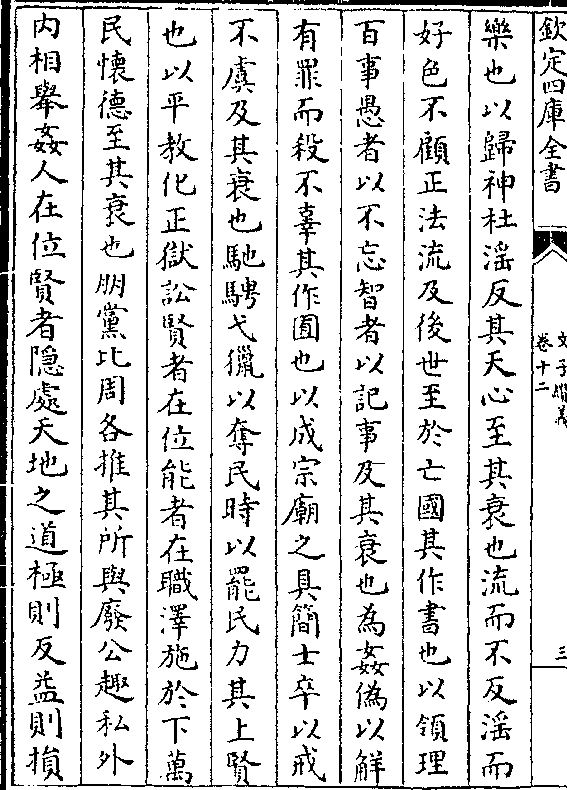 欽定四庫全書
文子纘義
卷十二
三
樂也以歸神杜淫反其天心至其衰也流而不反淫而
好色不顧正法流及後世至於亡國其作書也以領理
百事愚者以不忘智者以記事及其衰也為姦偽以解
有罪而殺不辜其作囿也以成宗廟之具簡士卒以戒
不虞及其衰也馳騁弋獵以奪民時以罷民力其上賢
也以平教化正獄訟賢者在位能者在職澤施於下萬
民懷德至其衰也朋黨比周各推其所與廢公趣私外
内相舉姦人在位賢者隱處天地之道極則反益則損